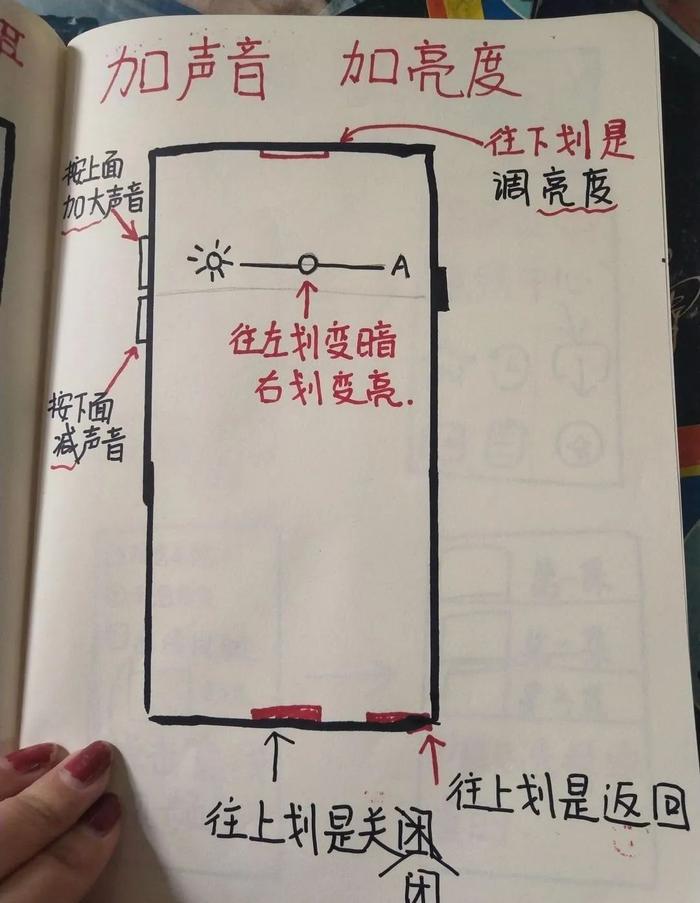 加声音 加亮度
往下划是
调亮度
按上面
加大声音
A
往左划变暗
右划变亮.
按下面
减声音
往上划是返回
往上划是关闭
闭